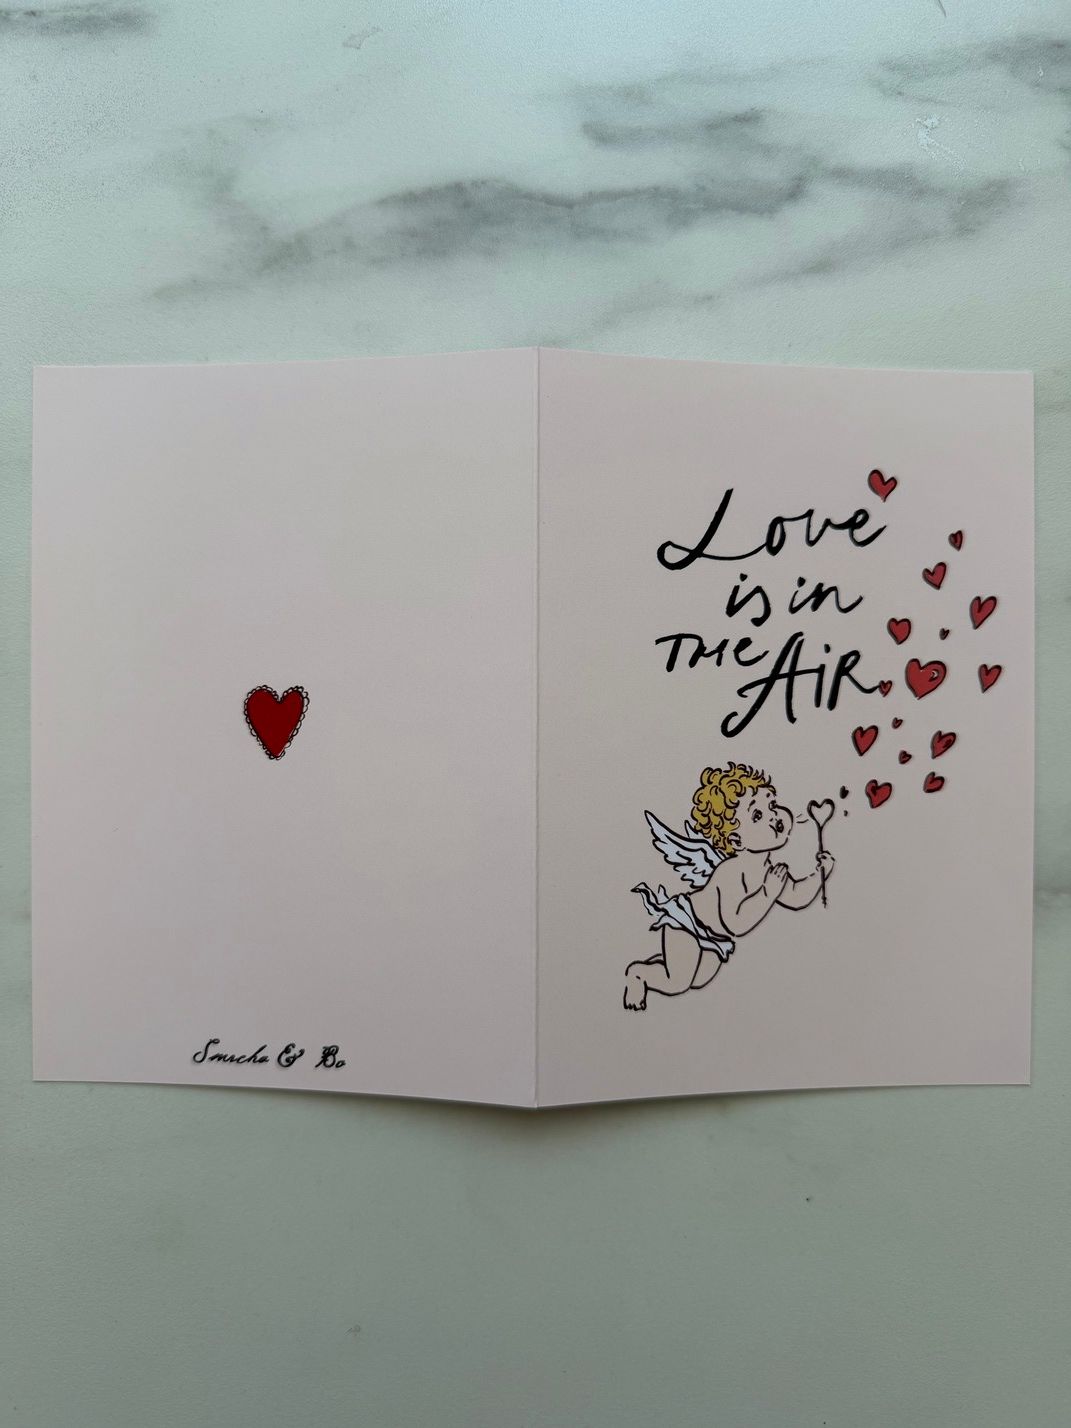 Love
is in
THE AiR
& Bo